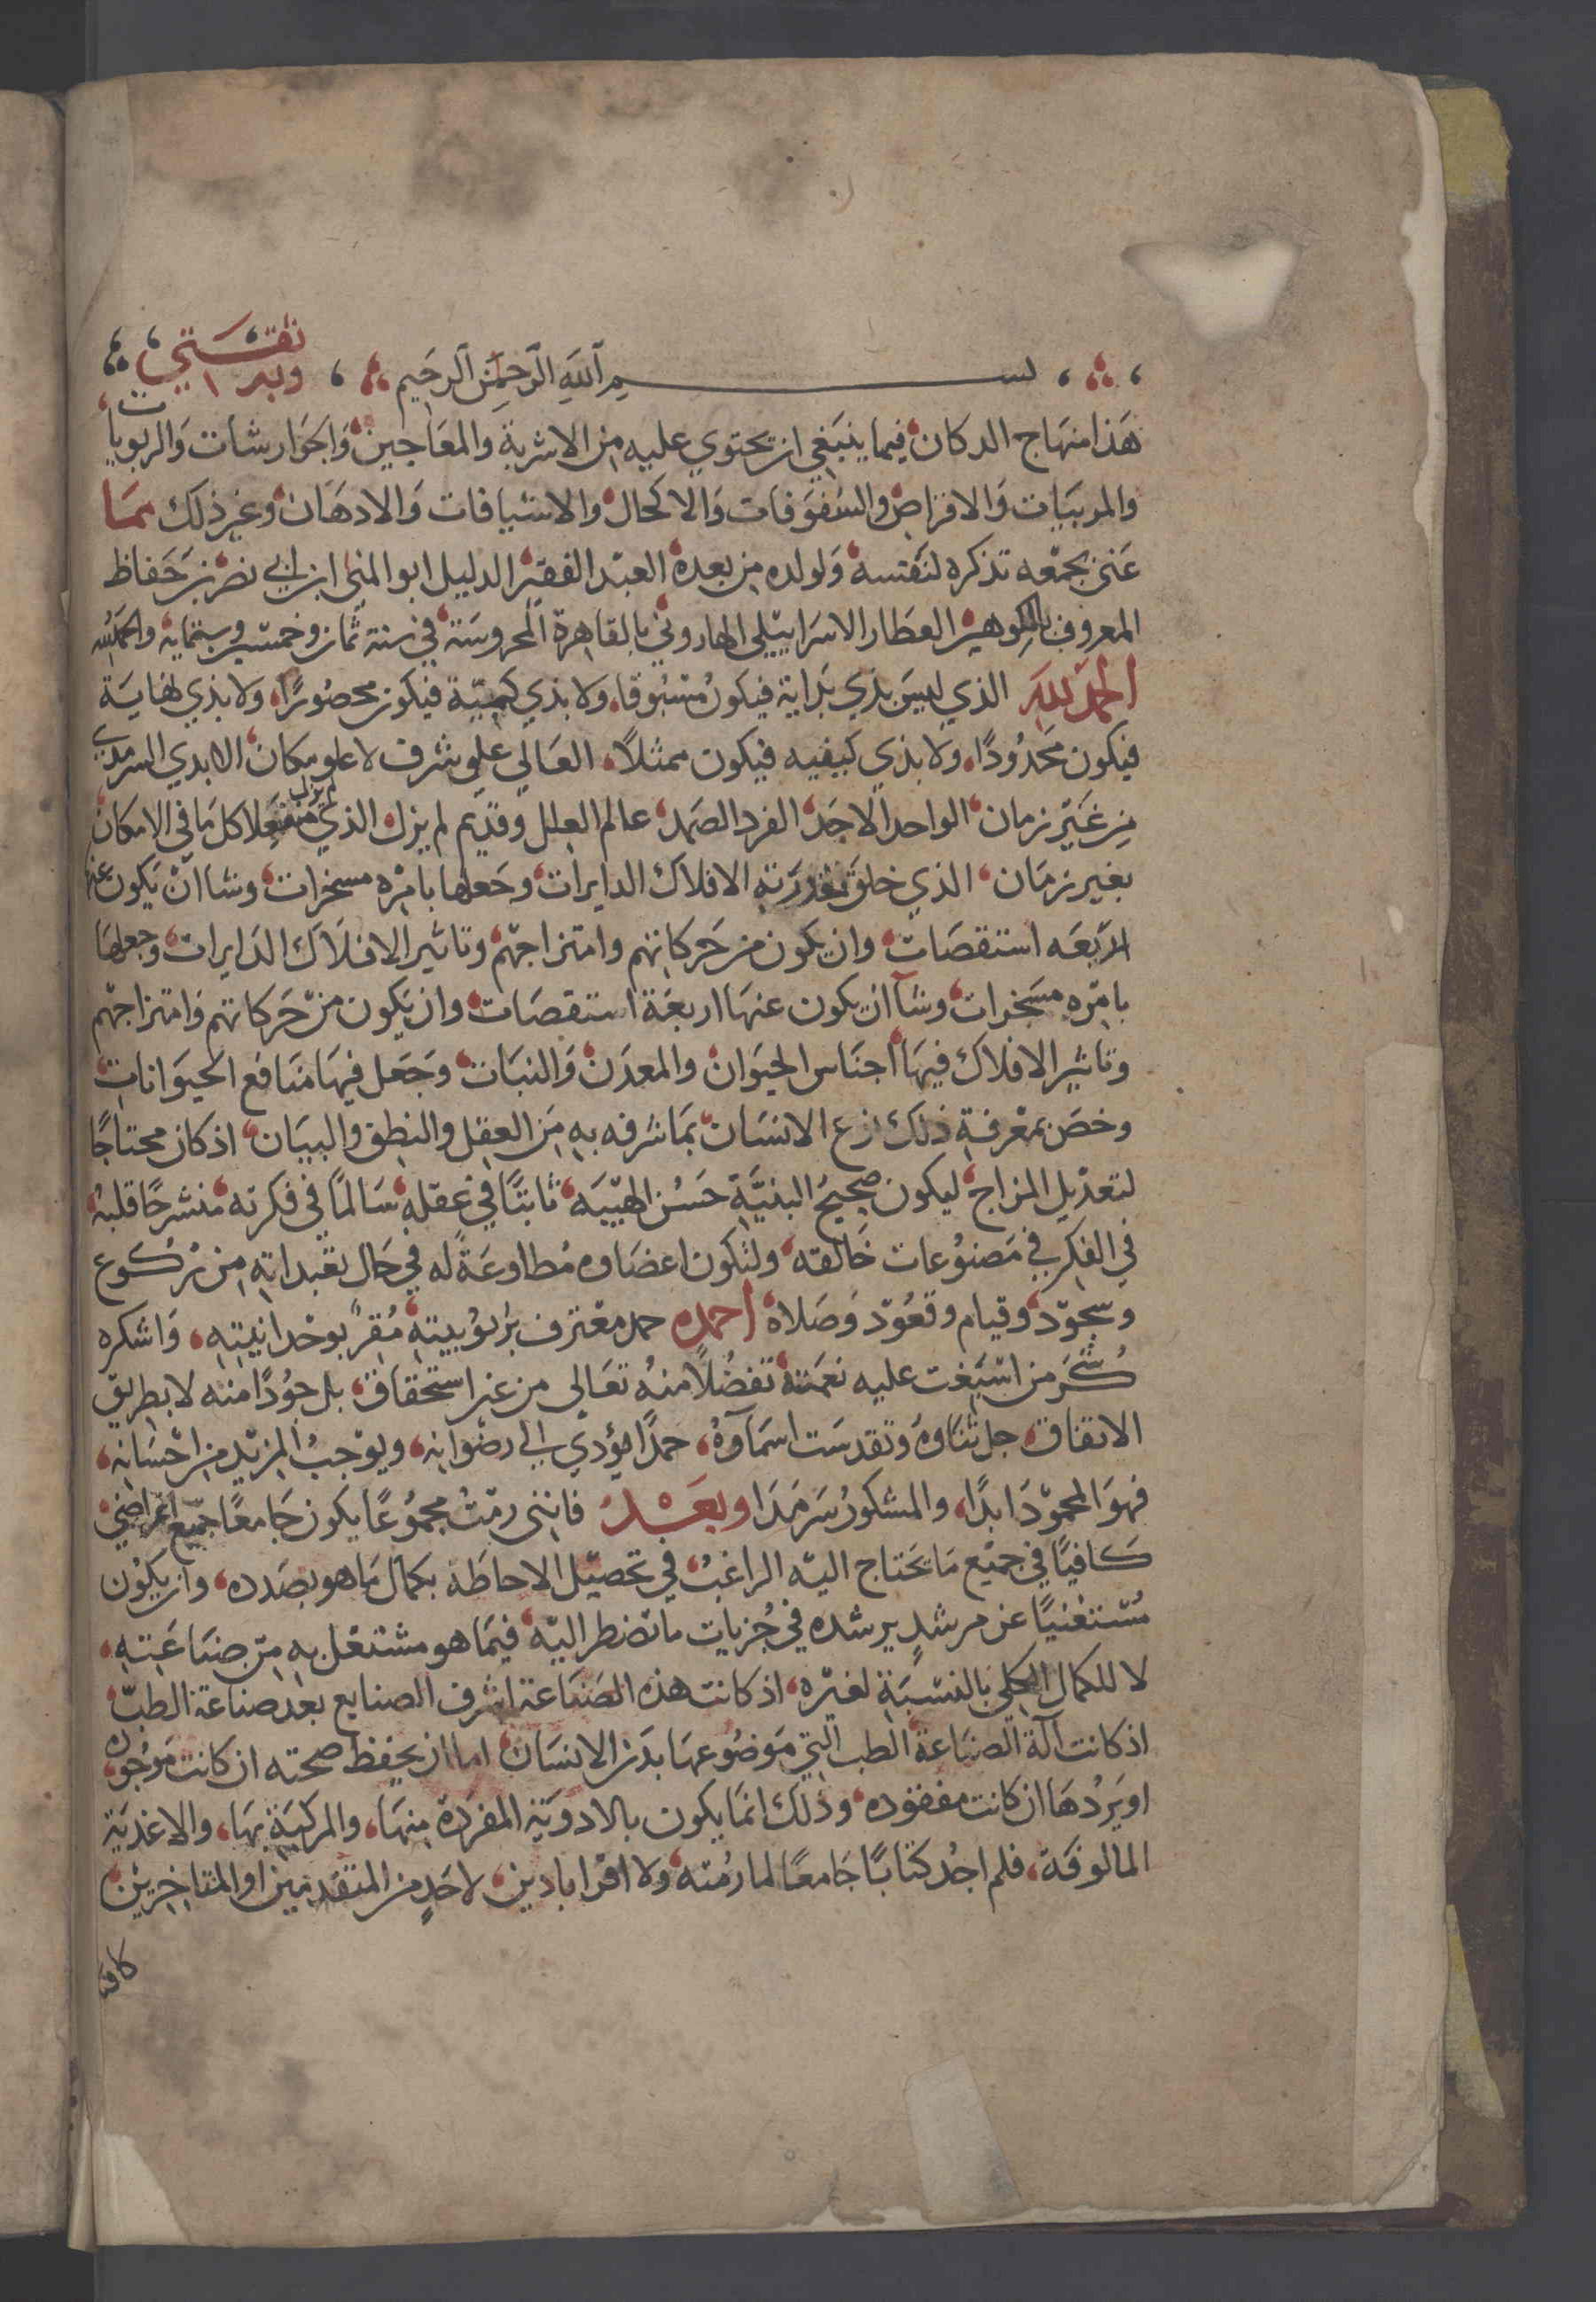 بسم الله الرحمن الرحيم وبه ثقتي
هذا منهاج الدكان فيما ينبغي ان يحتوي عليه من الاشربة والمعاجين والجوارشات والربوبات
والمربيات والاقراص والسفوفات والاكحال والاشيافات والادهان وغير ذلك مما
عني بجمعه تذكره لنفسه ولولده من بعده العبد الفقير الدليل ابو المنى ابن ابي نصر بن حفاظ
المعروف بالكوهين العطار الاسراييلي الهاروني بالقاهرة المحروسة في سنة ثمان وخمسين وستمايه والحمد لله
الحمد لله الذي ليس بذي بداية فيكون مسبوقا ولا بذي كمية فيكون محصورا ولا بذي نهاية
فيكون محدودا ولا بذي كيفيه فيكون ممثلا العالي علي شرف لا علو مكان الابدي السرمدي
من غير زمان الواحد الاحد الفرد الصمد عالم العلل وقديم لم يزل الذي لم يزل منفعلا كل ما في الامكان
بغير زمان الذي خلق بقدرته الافلاك الدايرات وجعلها بامره مسخرات وشا ان يكون عنها
الاربعه استقصات وان يكون من حركاتهم وامتزاجهم وتاثير الافلاك الدايرات وجعلها
بامره مسخرات وشا ان يكون عنها اربعة استقصات وان يكون من حركاتهم وامتزاجهم
وتاثير الافلاك فيها اجناس الحيوان والمعدن والنبات وجعل فيها منافع الحيوانات
وخص بمعرفة ذلك نوع الانسان بما شرفه به من العقل والنطق والبيان اذ كان محتاجا
لتعديل المزاج ليكون صحيح البنية حسن الهيبه ثابتا في عقله سالما في فكرته منشرحا قلبه
في الفكر في مصنوعات خالقه ولتكون اعضاوه مطاوعة له في حال تعبداته من ركوع
وسجود وقيام وقعود وصلاة احمده حمد معترف بربوبيته مقر بوحدانيته واشكره
شكر من اسبغت عليه نعمته تفضلا منه تعالي من غير استحقاق بل جودا منه لا بطريق
الاتفاق جل ثناوه وتقدست اسماوه حمدا يؤدي الي رضوانه ويوجب المزيد من احسانه
فهو المحمود ابدا والمشكور سرمدا وبعد فانني رمت مجموعا يكون جامعا جميع اغراضي
كافيا في جميع ما يحتاج اليه الراغب في تحصيل الاحاطة بكمال ما هو بصدده وان يكون
مستغنيا عن مرشد يرشده في جزيات ما تضطر اليه فيما هو مشتغل به من صناعته
لا للكمال الكلي بالنسبة لغيره اذ كانت هذه الصناعة اشرف الصنايع بعد صناعة الطب
اذ كانت آلة الصناعة الطب التي موضوعها بدن الانسان اما ان يحفظ صحته ان كانت موجوده
او يردها ان كانت مفقوده وذلك انما يكون بالادوية المفردة منها والمركبة بها والاغذية
المالوفة فلم اجد كتابا جامعا لما رمته ولا اقراباذين لاحد من المتقدمين او المتاخرين
كافيا